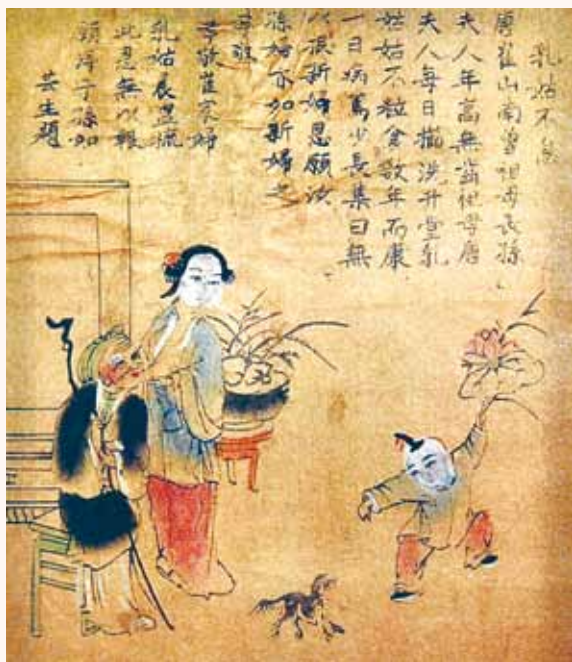 乳姑不怠
唐崔山南曾祖母長孫
夫人年高無齒祖母唐
夫人每日櫛洗升堂乳
姑姑不粒食數年而康
一日病篤少長集曰無
以報新婦恩願汝
孫婦亦如新婦之
孝敬
孝敬崔家婦
乳姑晨盥梳
此恩無以報
願得子孫如
芸生題